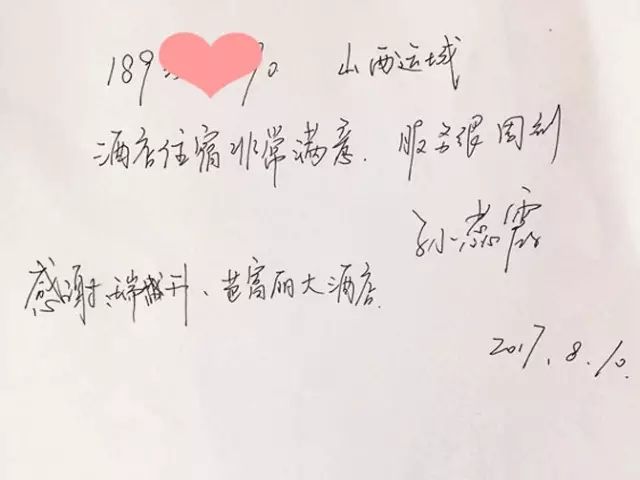 189 90 山西运城
酒店住宿非常满意. 服务很周到
孙
感谢 升、芭富丽大酒店.
2017.8.10.